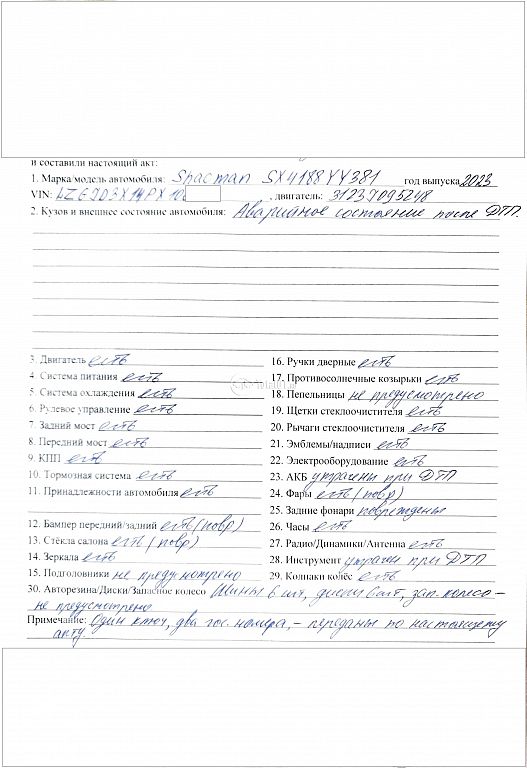 и составили настоящий акт:
1. Марка/модель автомобиля: Shacman SX4188YY381 год выпуска 2023
VIN: LZGJD3X14PX10 , двигатель: 3123J095248
2. Кузов и внешнее состояние автомобиля: Аварийное состояние после ДТП.
3. Двигатель есть
4. Система питания есть
5. Система охлаждения есть
6. Рулевое управление есть
7. Задний мост есть
8. Передний мост есть
9. КПП есть
10. Тормозная система есть
11. Принадлежности автомобиля есть
12. Бампер передний/задний есть (повр)
13. Стёкла салона есть (повр)
14. Зеркала есть
15. Подголовники не предусмотрено
16. Ручки дверные есть
17. Противосолнечные козырьки есть
18. Пепельницы не предусмотрено
19. Щетки стеклоочистителя есть
20. Рычаги стеклоочистителя есть
21. Эмблемы/надписи есть
22. Электрооборудование есть
23. АКБ утрачены при ДТП
24. Фары есть (повр)
25. Задние фонари повреждены
26. Часы есть
27. Радио/Динамики/Антенна есть
28. Инструмент утрачен при ДТП
29. Колпаки колёс есть
30. Авторезина/Диски/Запасное колесо Шины 6 шт, диски 6 шт, зап. колесо –
не предусмотрено
Примечание: Один ключ, два гос. номера, – переданы по настоящему
акту